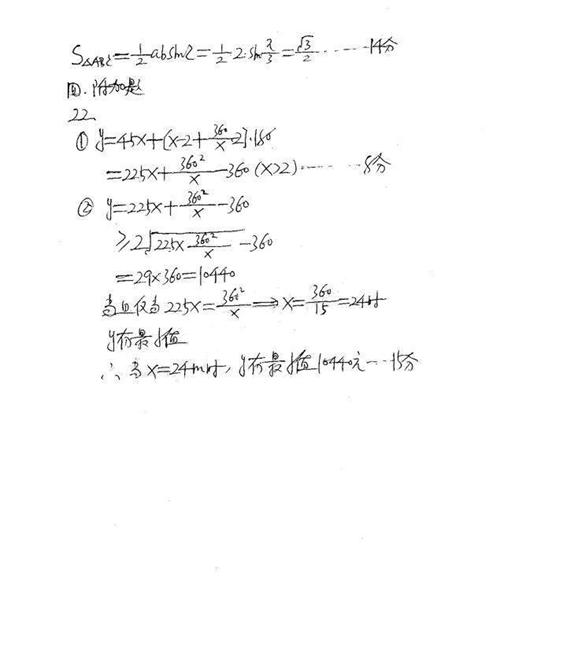 S△ABC=½absinC=½·2·sinπ/3=√3/2 ……14分
四.附加题
22.
① y=45x+(x-2+360/x-2]·180
=225x+360²/x-360(x>2)……8分
② y=225x+360²/x-360
≥2√(225x·360²/x)-360
=29×360=10440
当且仅当225x=360²/x⟹x=360/15=24时
y有最小值
∴当x=24m时,y有最小值10440元…15分